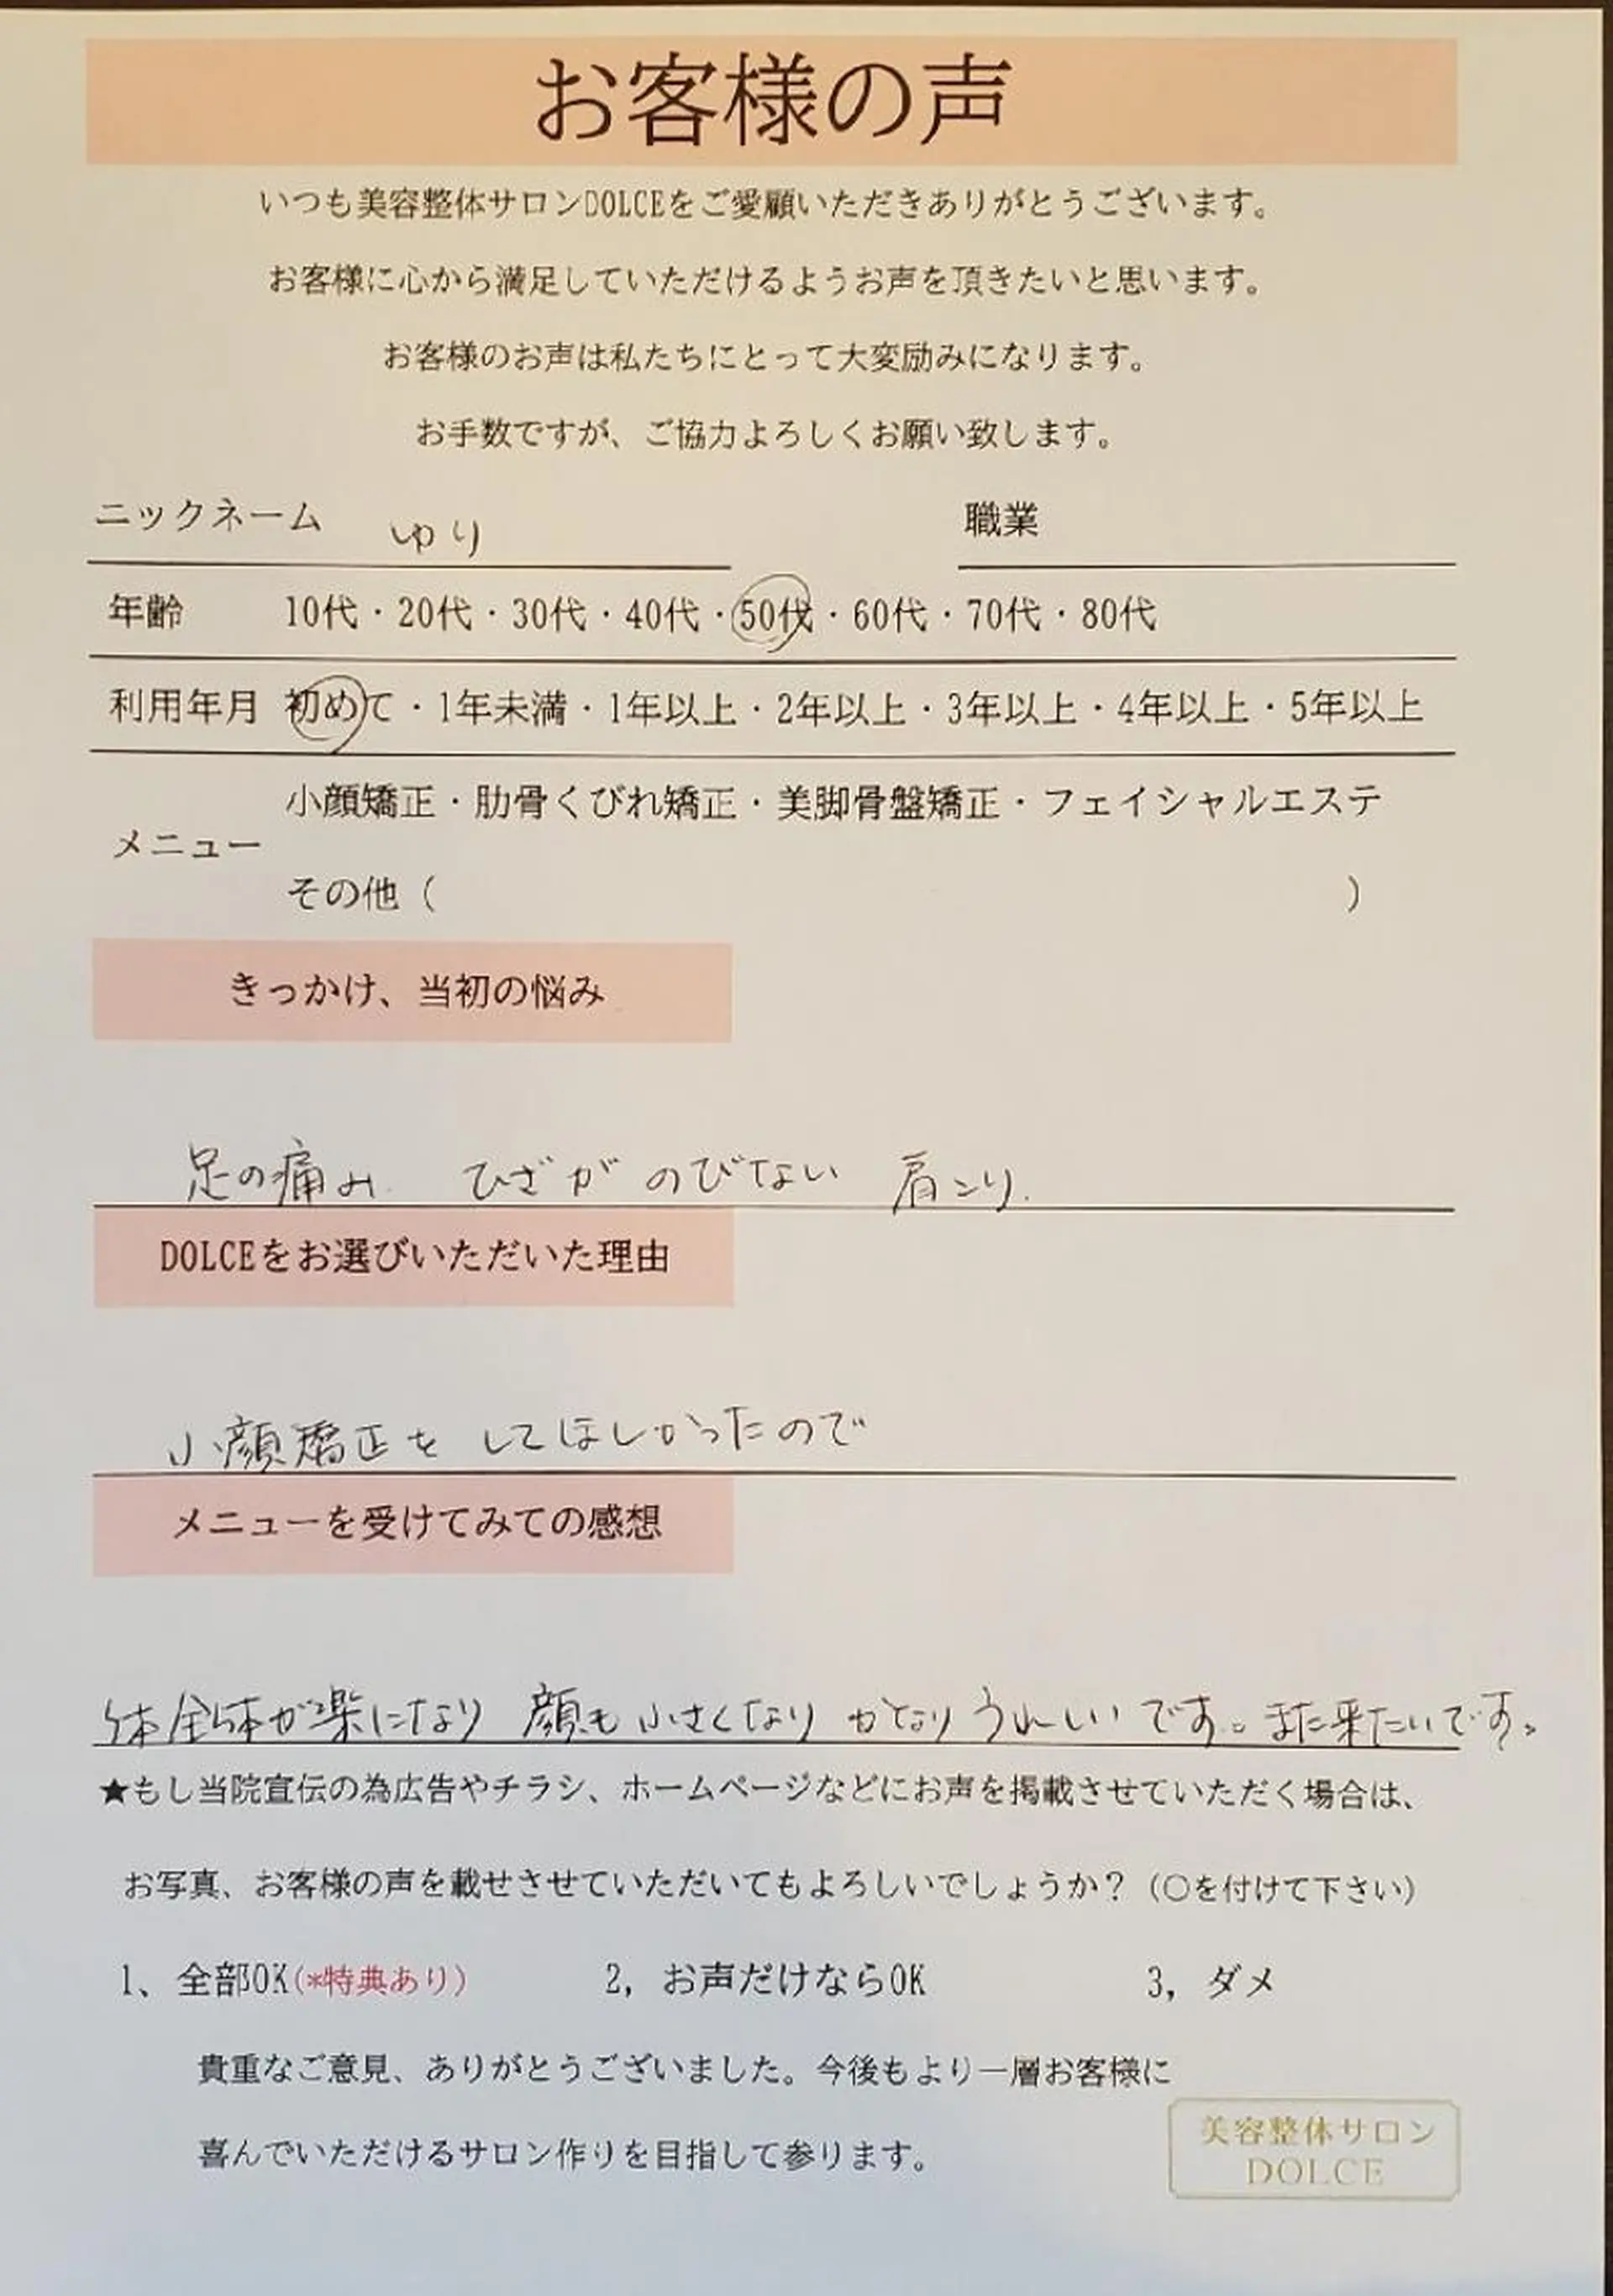 お客様の声
いつも美容整体サロンDOLCEをご愛顧いただきありがとうございます。
お客様に心から満足していただけるようお声を頂きたいと思います。
お客様のお声は私たちにとって大変励みになります。
お手数ですが、ご協力よろしくお願い致します。
ニックネーム ゆり 職業
年齢 10代・20代・30代・40代・50代・60代・70代・80代
利用年月 初めて・1年未満・1年以上・2年以上・3年以上・4年以上・5年以上
小顔矯正・肋骨くびれ矯正・美脚骨盤矯正・フェイシャルエステ
メニュー
その他（ ）
きっかけ、当初の悩み
足の痛み ひざが のびない 肩こり.
DOLCEをお選びいただいた理由
小顔矯正を してほしかったので
メニューを受けてみての感想
体全体が楽になり 顔も小さくなり かなりうれしいです。また来たいです。
★もし当院宣伝の為広告やチラシ、ホームページなどにお声を掲載させていただく場合は、
お写真、お客様の声を載せさせていただいてもよろしいでしょうか？（○を付けて下さい）
1、全部OK(*特典あり) 2, お声だけならOK 3, ダメ
貴重なご意見、ありがとうございました。今後もより一層お客様に
喜んでいただけるサロン作りを目指して参ります。
美容整体サロン
DOLCE